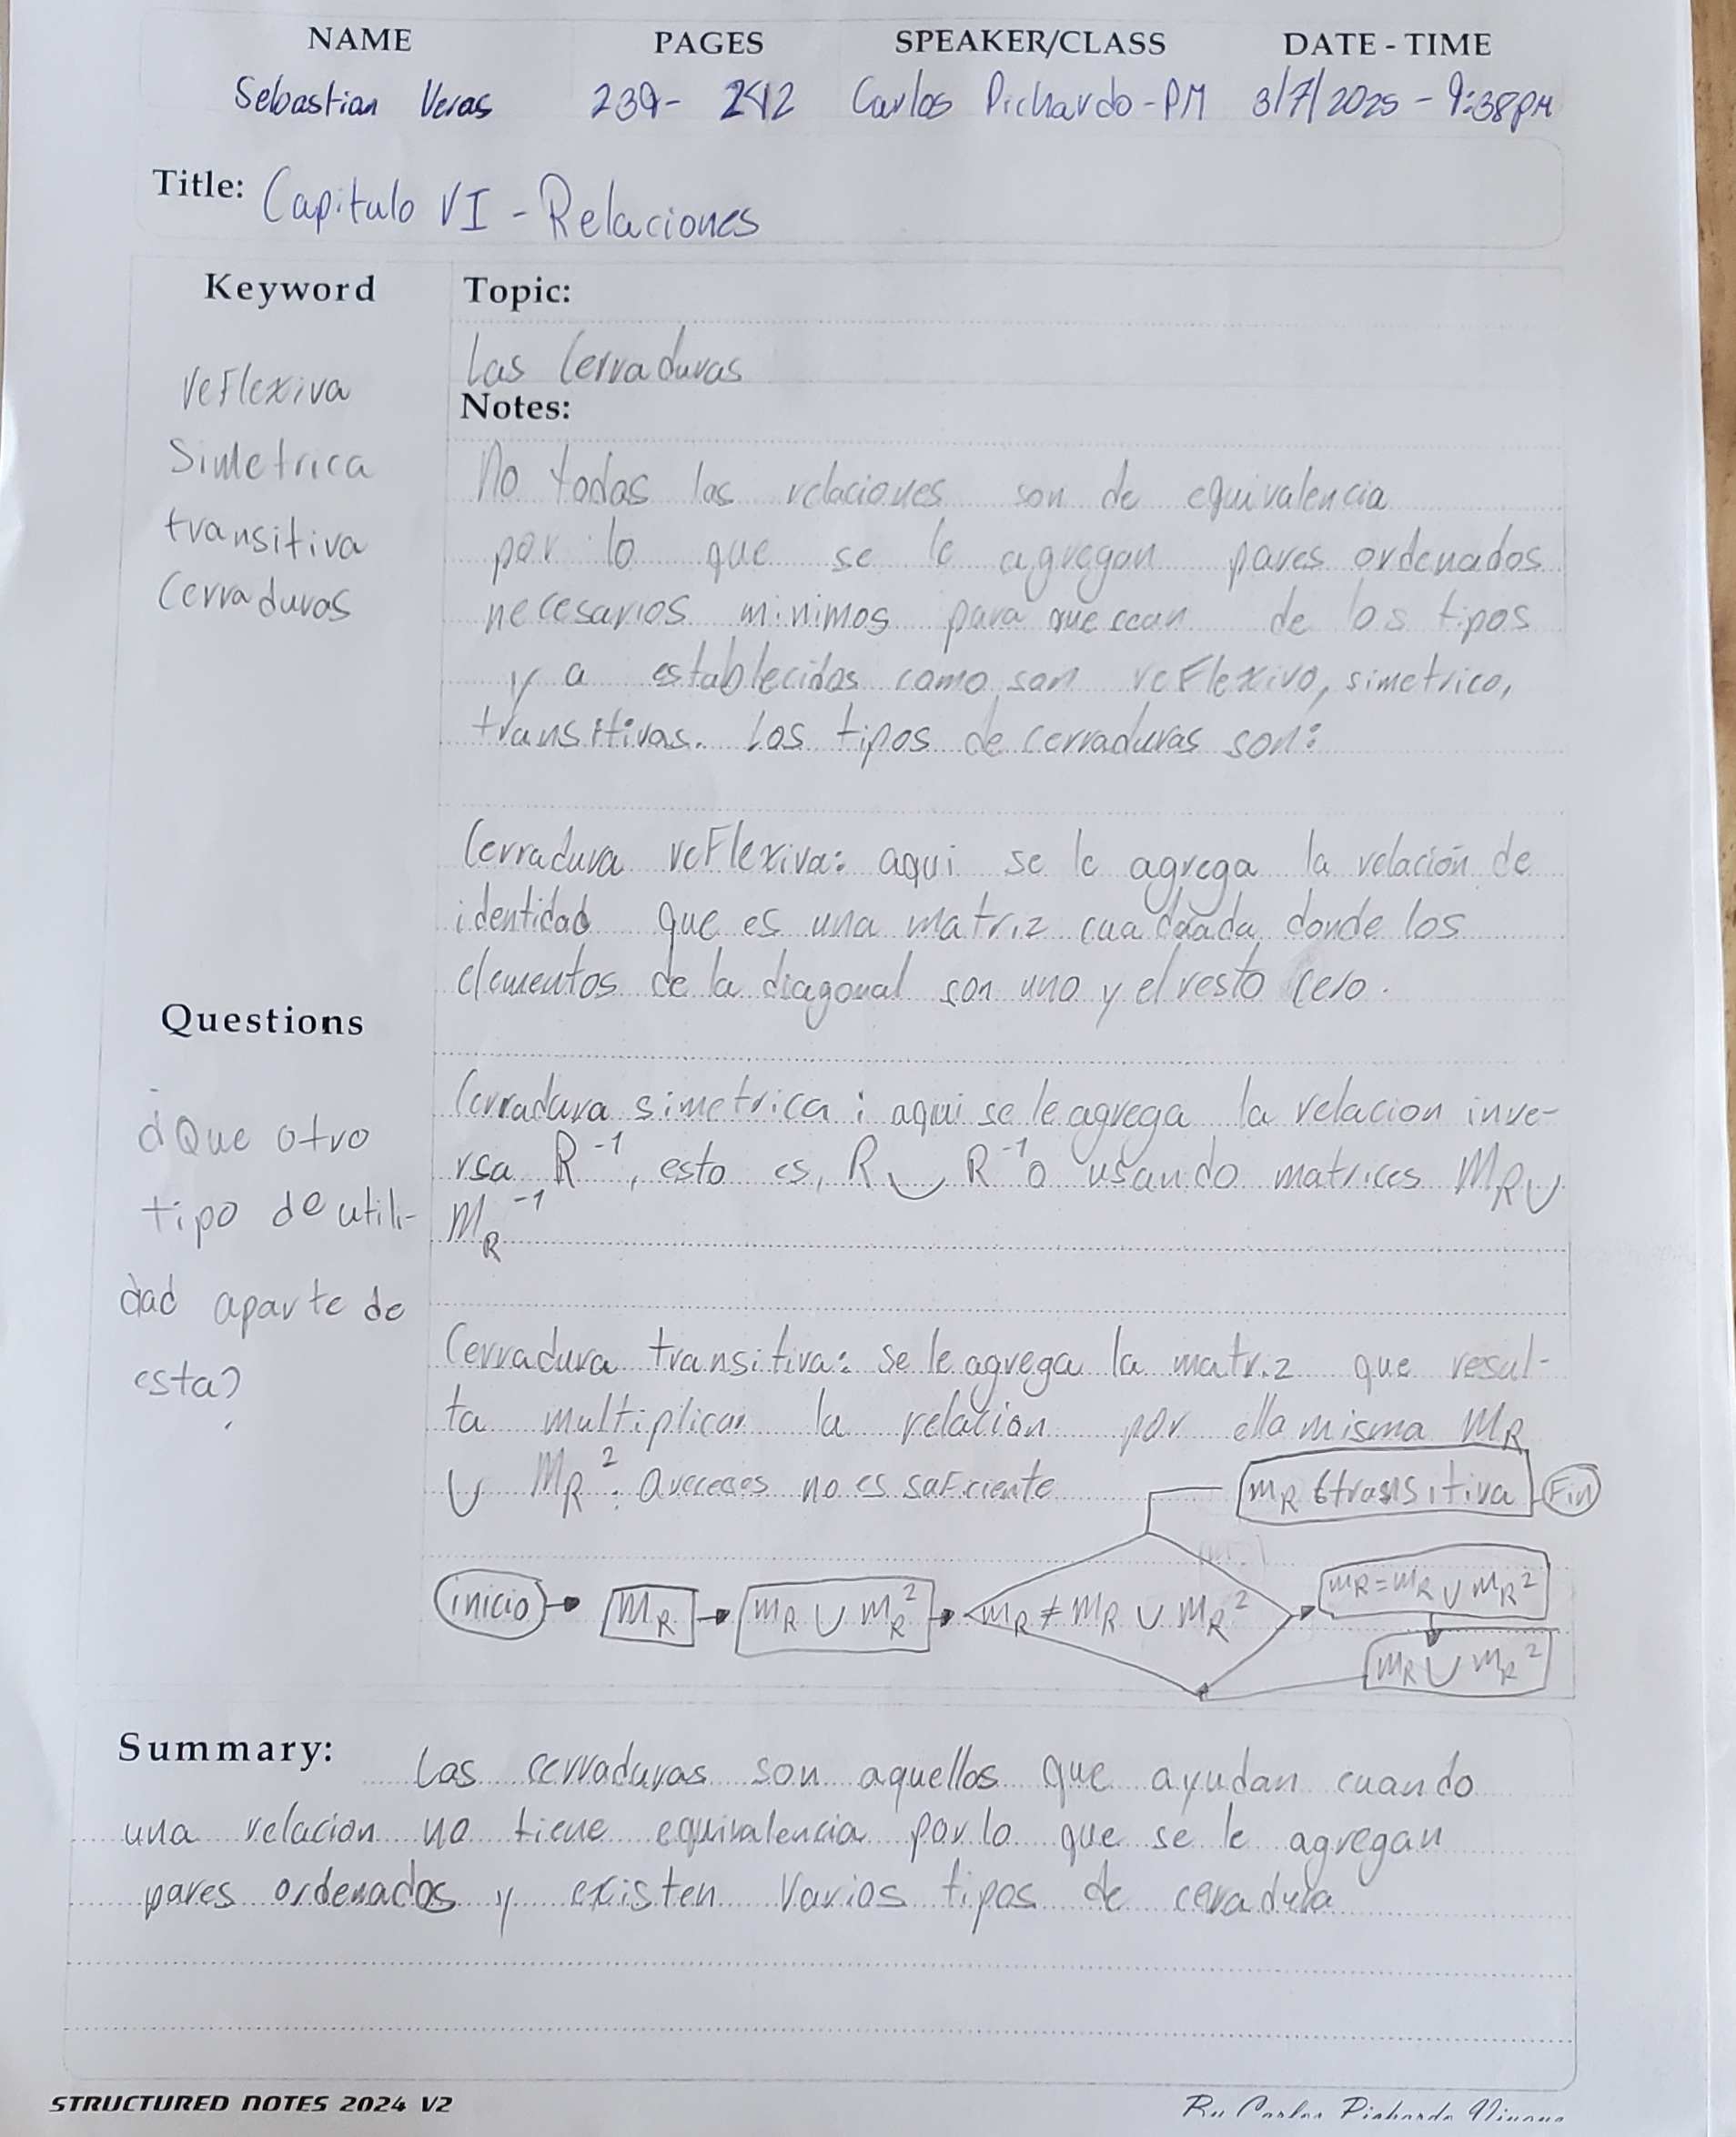 NAME PAGES SPEAKER/CLASS DATE - TIME
Sebastian Veras 239- 242 Carlos Pichardo-PM 3/7/2025 - 9:38PM
Title: Capitulo VI - Relaciones
Keyword
reflexiva
Simetrica
transitiva
Cerraduras
Questions
¿Que otro
tipo de utili-
dad aparte de
esta?
Topic:
Las Cerraduras
Notes:
No todas las relaciones son de equivalencia
por lo que se le agregan pares ordenados
necesarios minimos para que sean de los tipos
ya establecidos como son reflexivo, simetrico,
transitivas. Los tipos de cerraduras son:
Cerradura reflexiva: aqui se le agrega la relación de
identidad que es una matriz cuadada donde los
elementos de la diagonal son uno y el resto cero.
Cerradura simetrica: aqui se le agrega la relacion inve-
rsa R⁻¹, esto es, R ∪ R⁻¹ o usando matrices M_R ∪
M_R⁻¹
Cerradura transitiva: se le agrega la matriz que resul-
ta multiplicar la relacion por ella misma M_R
∪ M_R². no es suficiente
M_R transitiva Fin
inicio M_R M_R ∪ M_R² M_R ≠ M_R ∪ M_R² M_R = M_R ∪ M_R²
M_R ∪ M_R²
Summary: Las cerraduras son aquellas que ayudan cuando
una relacion no tiene equivalencia por lo que se le agregan
pares ordenados y existen varios tipos de ceradura
STRUCTURED NOTES 2024 V2
By Carlos Pichardo